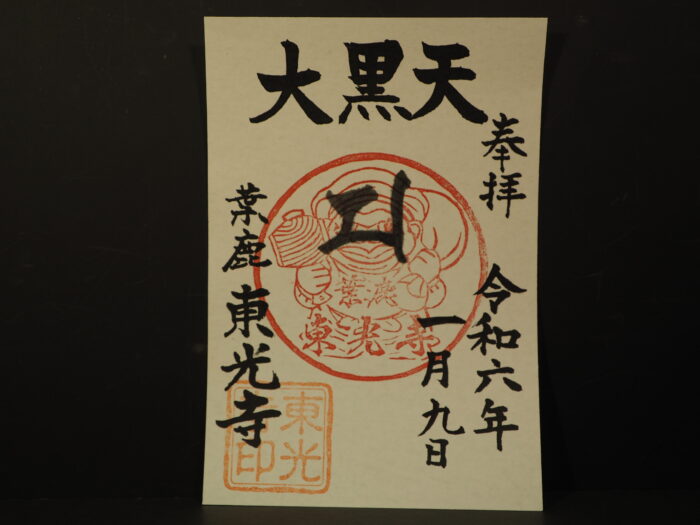 大黒天
奉拝
令和六年
一月九日
葉鹿
東光寺
葉鹿
東光寺
東光
寺印